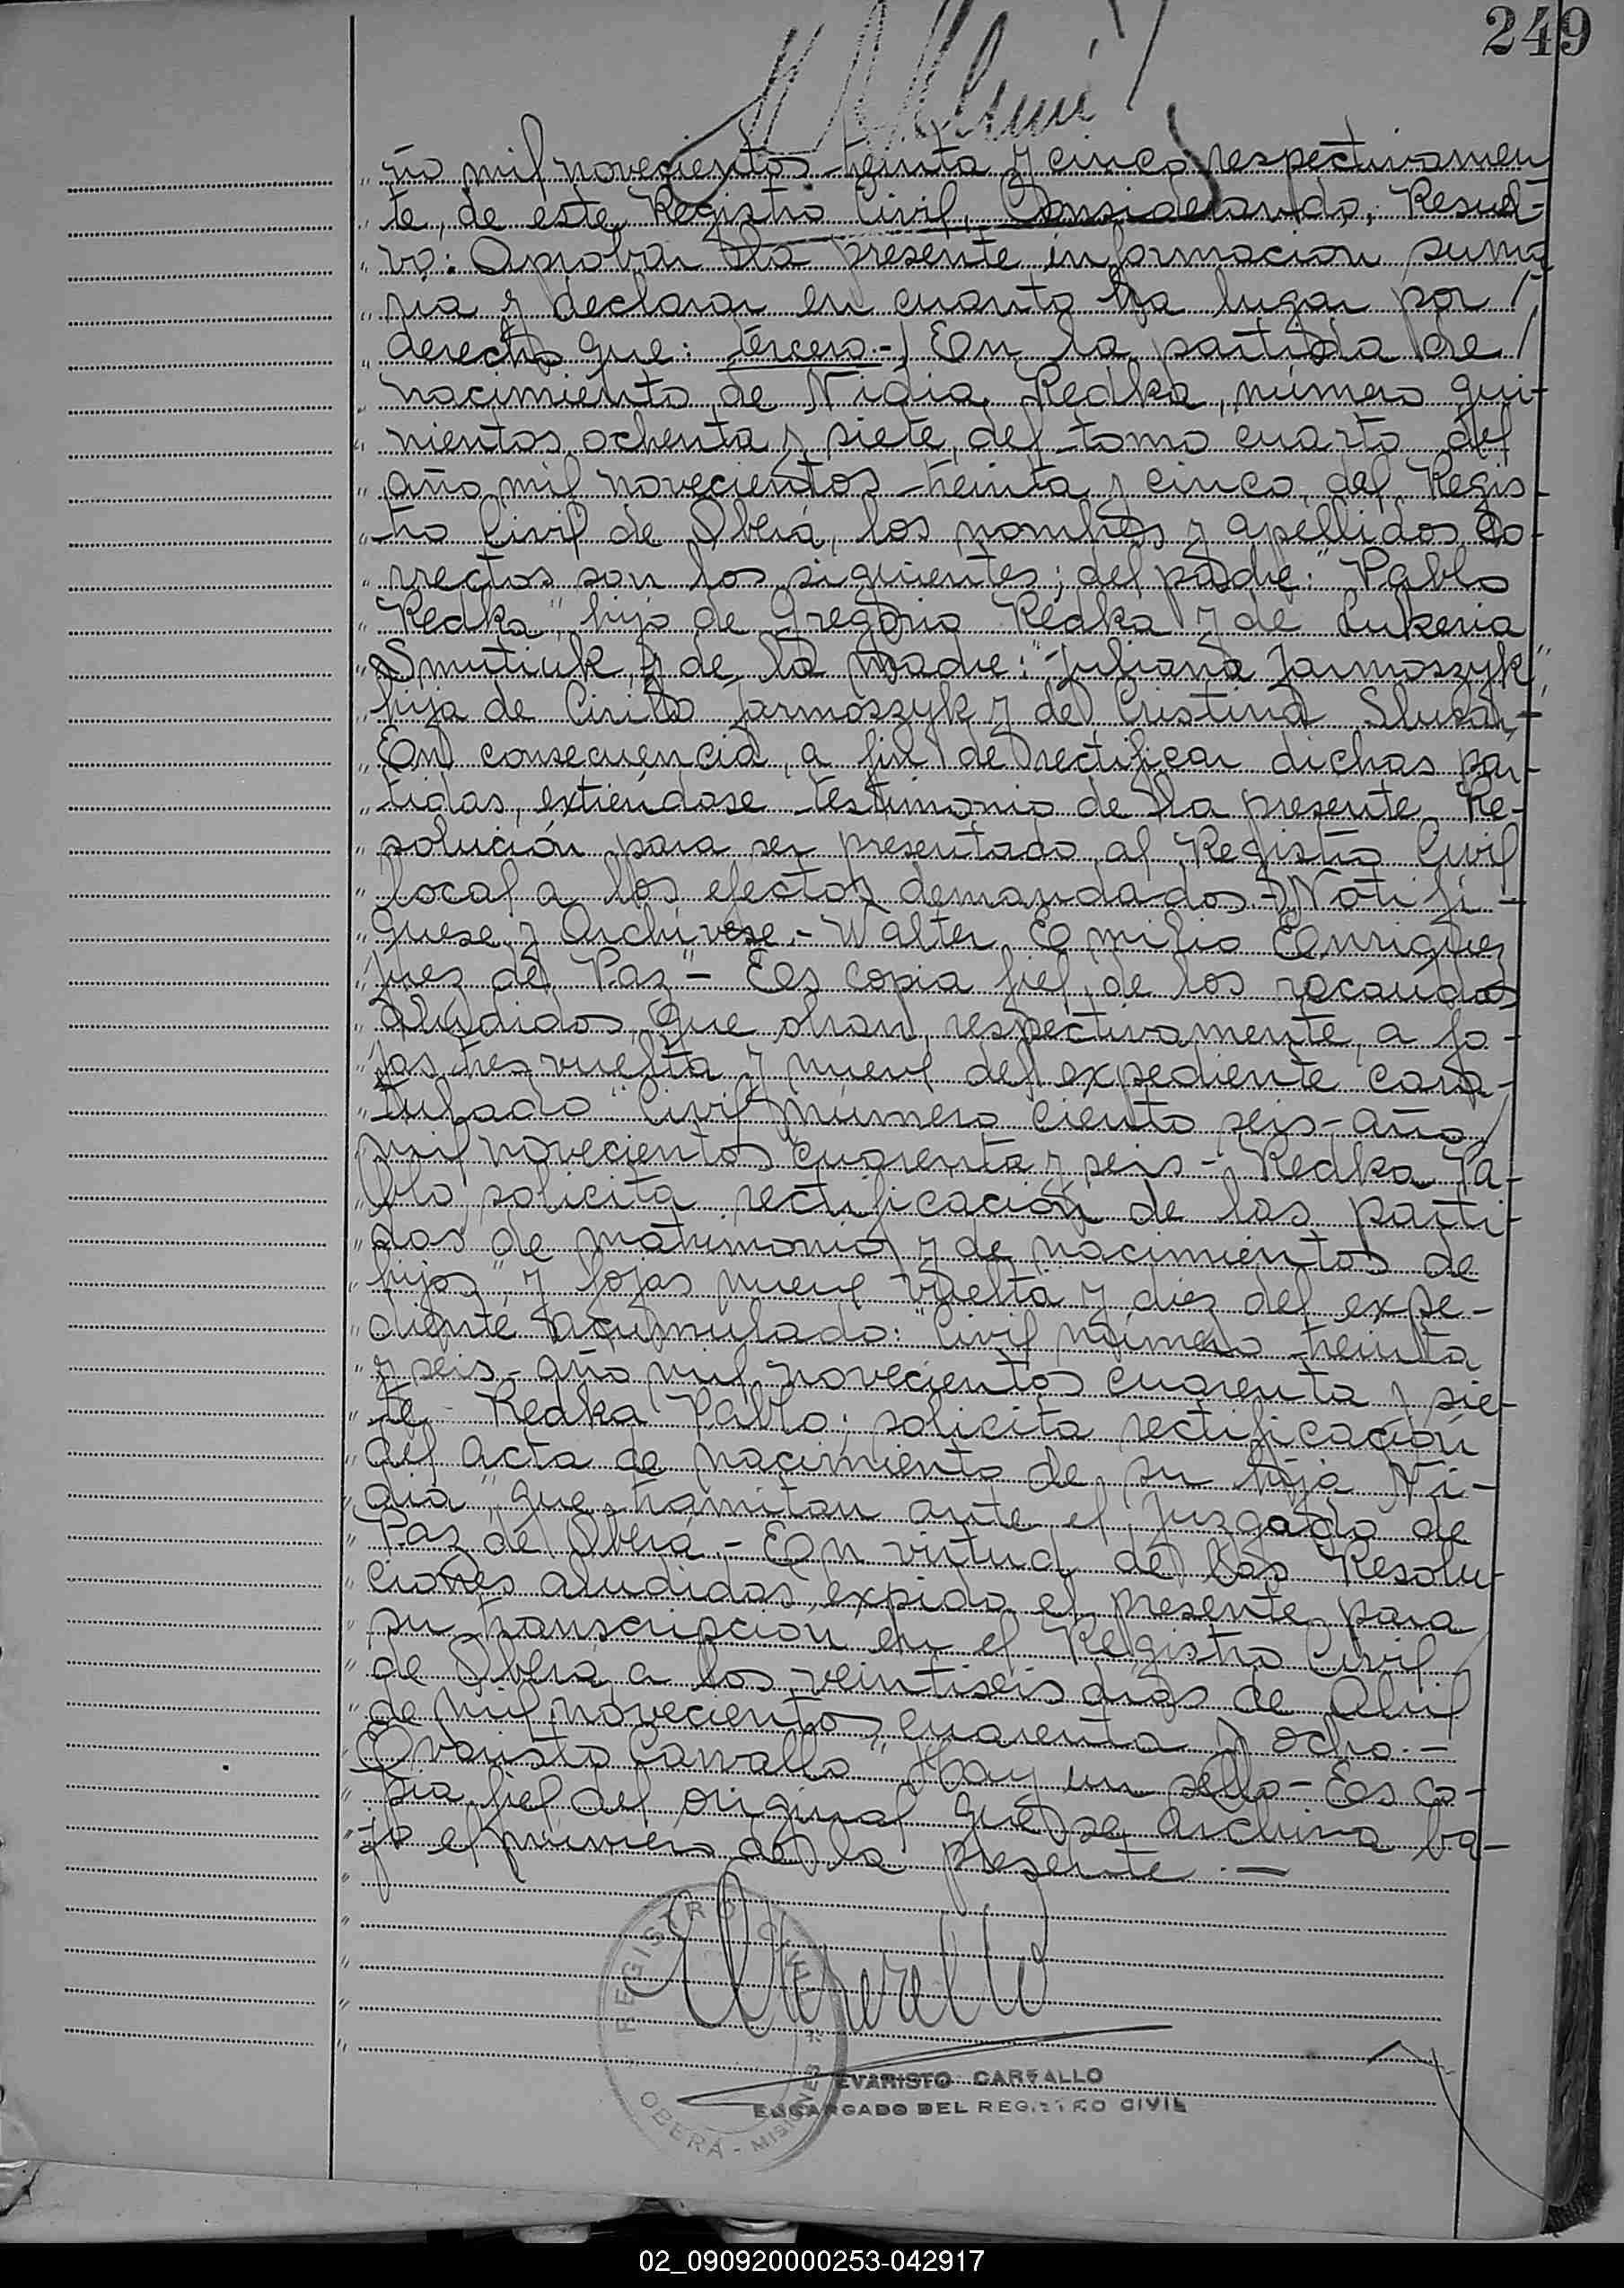 249
ño mil novecientos treinta y cinco respectivamen
te, de este Registro Civil, Considerando, Resuel-
vo: Aprobar la presente información suma
ria y declarar en cuanto ha lugar por /
derecho que: tercero.-) En la partida de /
nacimiento de Nidia Redka, número qui-
nientos ochenta y siete, del tomo cuarto del
año mil novecientos treinta y cinco, del Regis-
tro Civil de Oberá, los nombres y apellidos co-
rrectos son los siguientes; del padre: "Pablo
Redka", hijo de Gregorio Redka y de Lukeria
Smutiuk, y de la madre: "Juliana Jarmoszyk",
hija de Cirilo Jarmoszyk y de Cristina Slusar,-
En consecuencia, a fin de rectificar dichas par-
tidas, extiéndase testimonio de la presente Re-
solución para ser presentado al Registro Civil
local a los efectos demandados.- Notifí-
quese y Archívese.- Walter Emilio Enriquez
Juez de Paz"- Es copia fiel, de los recaudos
aludidos, que obran, respectivamente, a fo-
jas tres vuelta y nueve del expediente cara-
tulado "Civil número ciento seis- año /
mil novecientos cuarenta y seis - Redka Pa-
blo, solicita rectificación de las parti-
das de matrimonio y de nacimientos de
hijos", y fojas nueve vuelta y diez del expe-
diente acumulado: "Civil número treinta
y seis- año mil novecientos cuarenta y sie-
te - Redka Pablo; solicita rectificación
del acta de nacimiento de su hija Ni-
dia" que tramitan ante el Juzgado de
Paz de Oberá.- En virtud de las Resolu-
ciones aludidas, expido el presente para
su transcripción en el Registro Civil /
de Oberá a los veintiseis días de Abril
de mil novecientos cuarenta y ocho.-
Evaristo Carvallo" Hay un sello - Es co-
pia fiel del original que se archiva ba-
jo el número de la presente.-
REGISTRO CIVIL
OBERÁ - MISIONES
EVARISTO CARVALLO
ENCARGADO DEL REGISTRO CIVIL
02_090920000253-042917